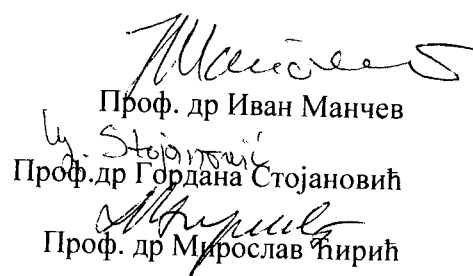 Проф. др Иван Манчев
Stojanović
Проф.др Гордана Стојановић
Проф. др Мирослав Ћирић